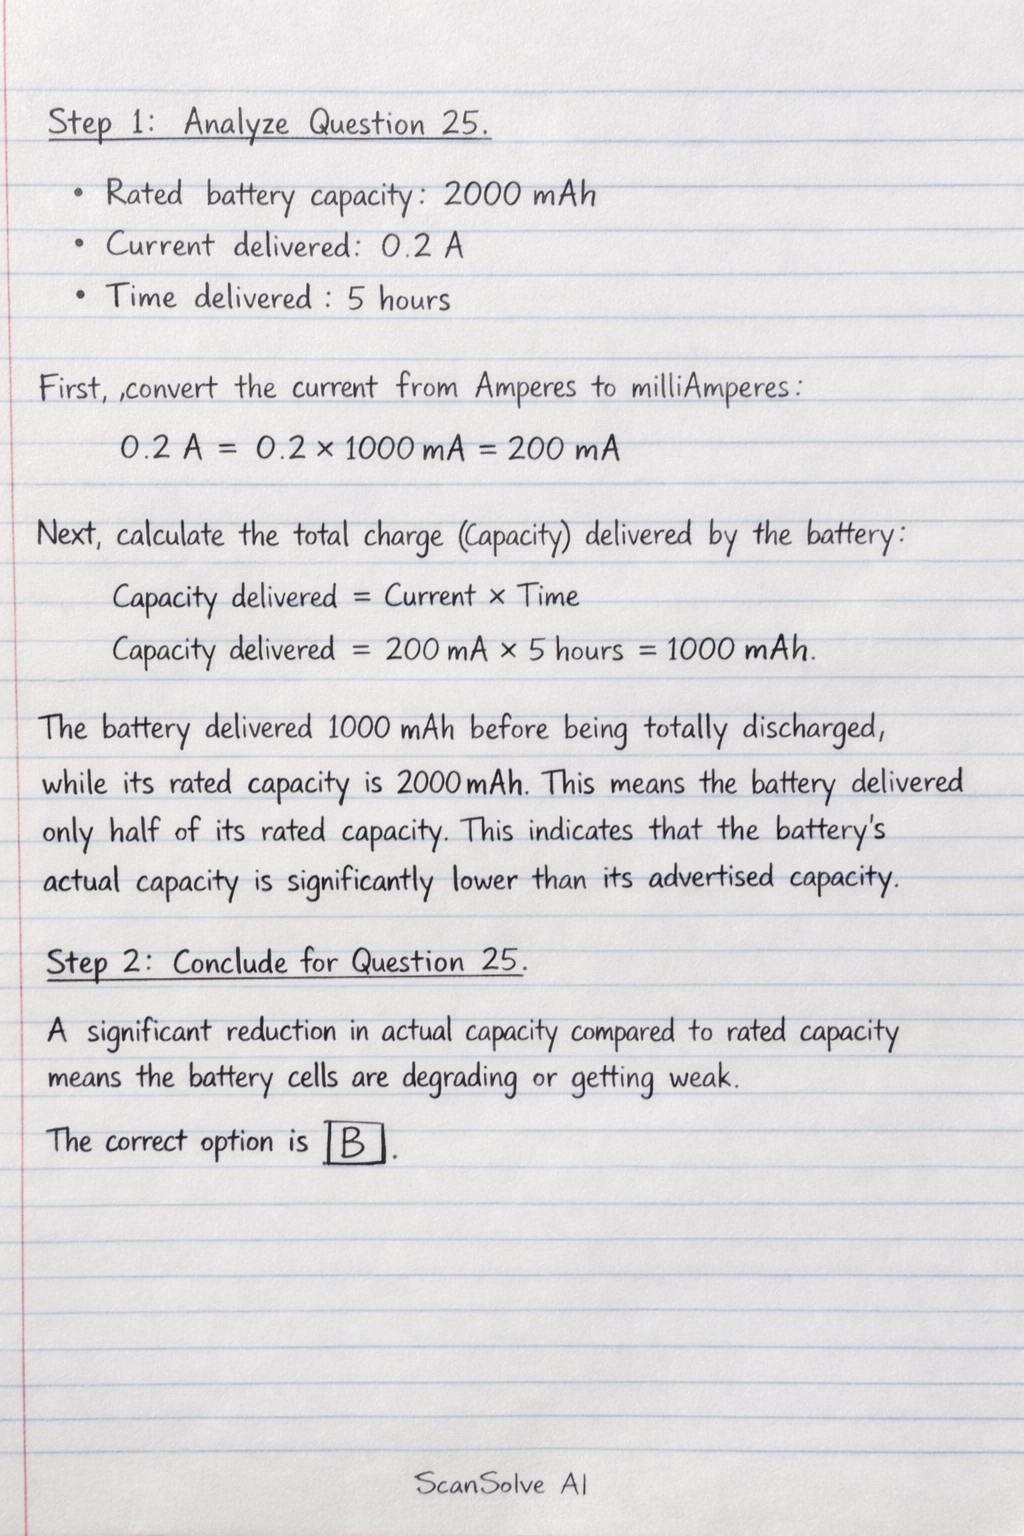 Step 1: Analyze Question 25.
• Rated battery capacity: 2000 mAh
• Current delivered: 0.2 A
• Time delivered : 5 hours
First, ,convert the current from Amperes to milliAmperes:
0.2 A = 0.2 × 1000 mA = 200 mA
Next, calculate the total charge (Capacity) delivered by the battery:
Capacity delivered = Current × Time
Capacity delivered = 200 mA × 5 hours = 1000 mAh.
The battery delivered 1000 mAh before being totally discharged,
while its rated capacity is 2000 mAh. This means the battery delivered
only half of its rated capacity. This indicates that the battery's
actual capacity is significantly lower than its advertised capacity.
Step 2: Conclude for Question 25.
A significant reduction in actual capacity compared to rated capacity
means the battery cells are degrading or getting weak.
The correct option is B.
ScanSolve AI